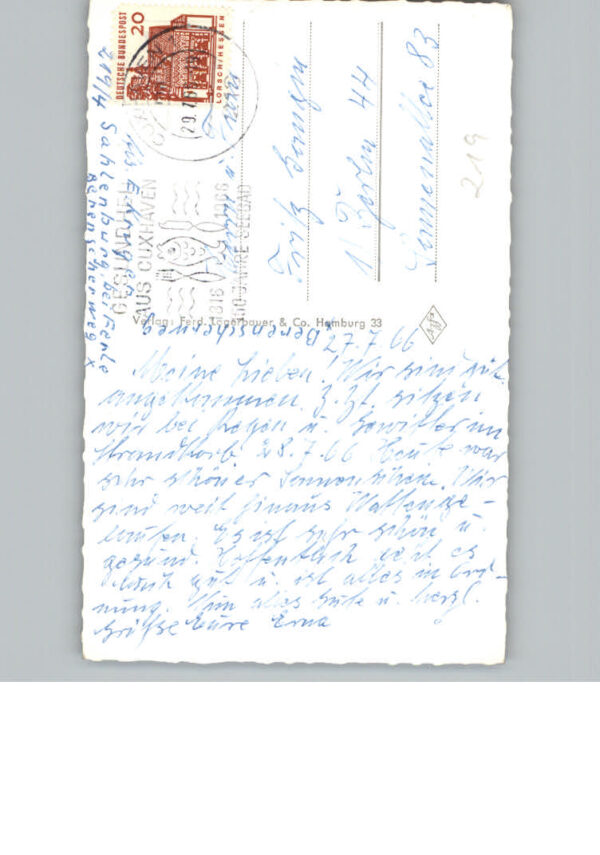 DEUTSCHE BUNDESPOST
20
LORSCH/HESSEN
29.7.66
GESUNDHEIT
AUS CUXHAVEN
1816 1966
150 JAHRE SEEBAD
2191/4 Sahlenburg bei
Berenscherweg
Fritz
1 Berlin 44
Sonnenallee 83
219
Verlag: Ferd. Lagerbauer & Co. Hamburg 33
Agfa
27.7.66
Meine Lieben! Wir sind gut
angekommen. Z. Zt. sitzen
wir bei Regen u. Gewitter im
Strandkorb. 28.7.66 Heute war
sehr schöner Sonnenschein. Wir
sind weit hinaus Wattenge-
laufen. Es ist sehr schön u.
gesund. Hoffentlich geht es
Euch gut u. ist alles in Ord-
nung. Nun alles Gute u. herzl.
Grüße Eure Erna